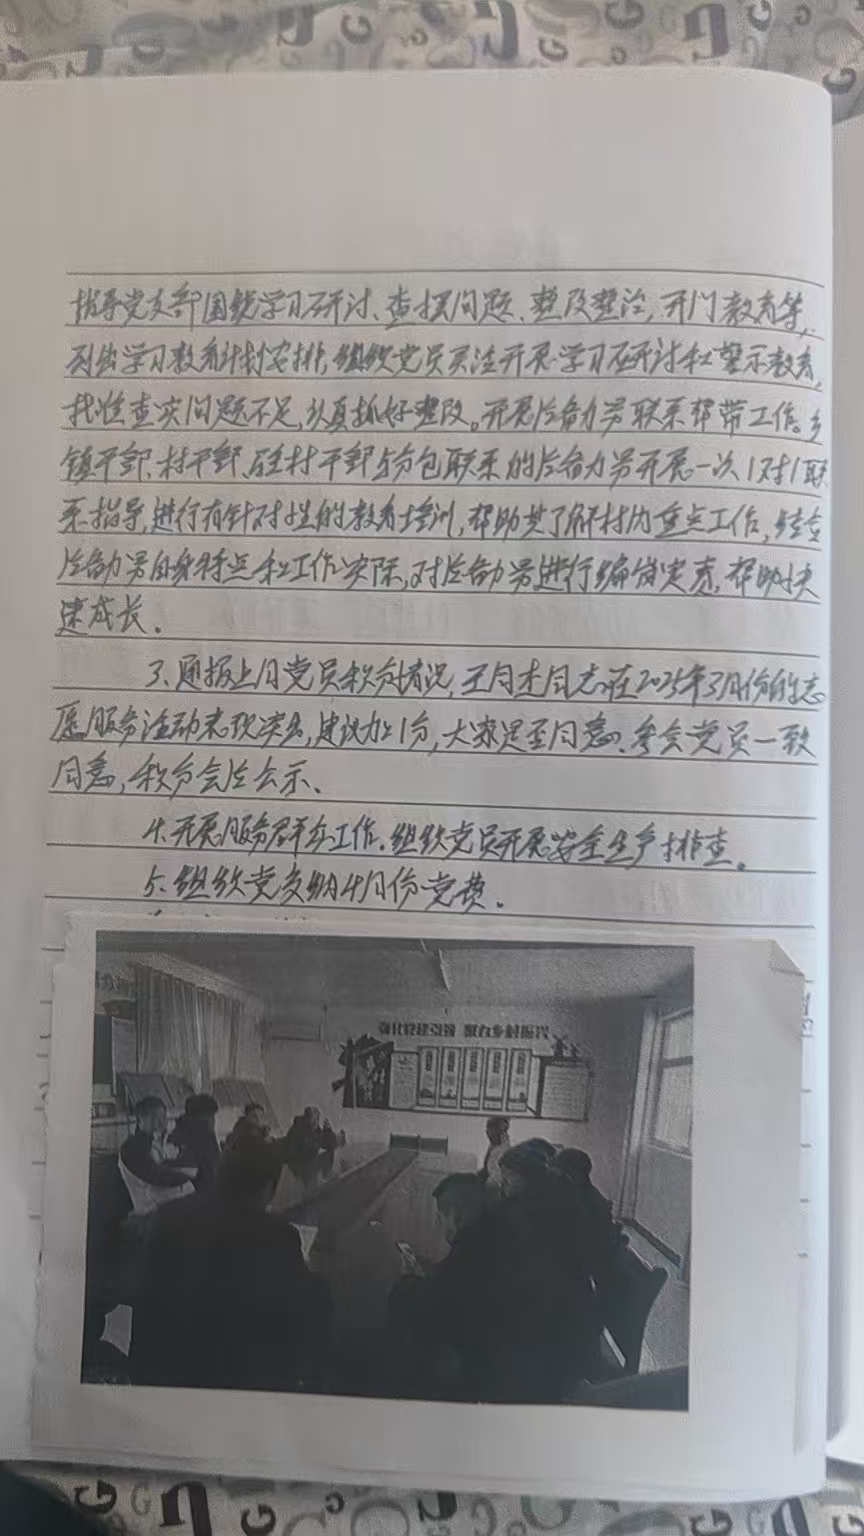 指导党支部围绕学习研讨、查摆问题、整改整治,开门教育等,
列出学习教育计划安排,组织党员灵活开展学习研讨和警示教育,
找准查实问题不足,认真抓好整改。开展后备力量联系帮带工作。乡
镇干部、村干部、驻村干部与分包联系的后备力量开展一次1对1联
系指导,进行有针对性的教育培训,帮助其了解村内重点工作,结合
后备力量自身特点和工作实际,对后备力量进行编岗定责,帮助快
速成长。
3、通报上月党员积分情况,王月杰同志在2025年3月份的志
愿服务活动表现突出,建议加1分,大家是否同意、参会党员一致
同意,积分会后公示、
4、开展服务群众工作。组织党员开展安全生产排查。
5、组织党交纳4月份党费。
强化党建引领 聚力乡村振兴